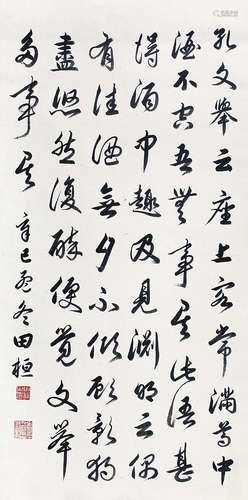 孔文舉云座上客常滿尊中
酒不空吾無事矣此語甚
得酒中趣及見淵明云偶
有佳酒無夕不傾顧影獨
盡悠然復醉便覺文舉
多事矣 辛巳孟冬田桓